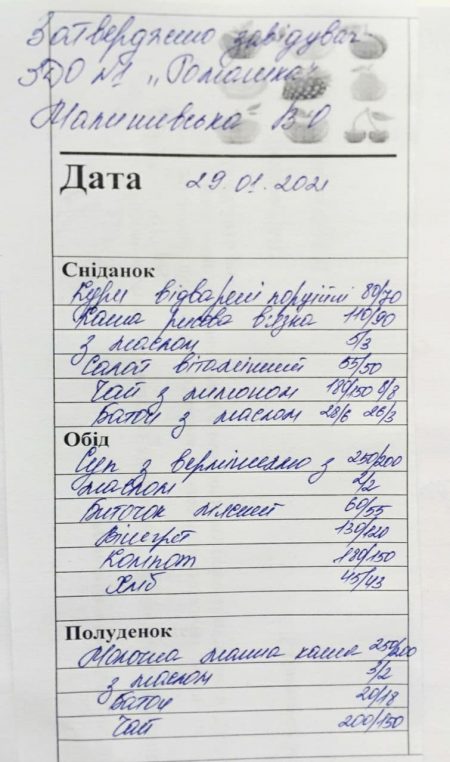 Затверджено завідувач
ЗДО №1 „Ромашка"
Малишевська В О
Дата 29.01.2021
Сніданок
Кури відварені порційні 80/70
Каша рисова в'язка 110/90
з маслом 5/3
Салат вітамінний 55/50
Чай з лимоном 180/150 8/8
Батон з маслом 28/6 26/3
Обід
Суп з вермішеллю з 250/200
маслом 2/2
Биточок мясний 60/55
Вінегрет 130/120
Компот 180/150
Хліб 45/43
Полуденок
Молочна манна каша 250/200
з маслом 3/2
Батон 20/18
Чай 200/150